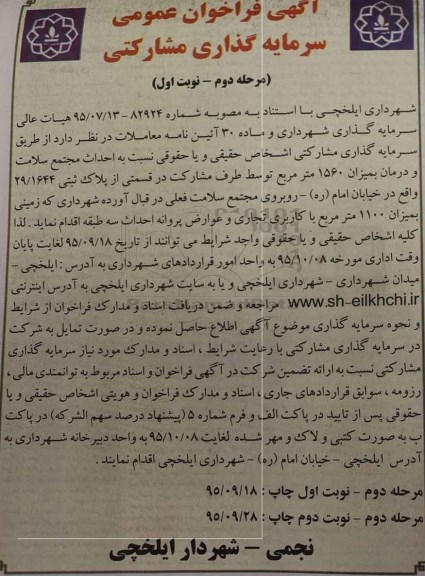 آگهی فراخوان عمومی
سرمایه گذاری مشارکتی
(مرحله دوم – نوبت اول)
شهرداری ایلخچی با استناد به مصوبه شماره ۸۲۹۲۴ – ۹۵/۰۷/۱۳ هیات عالی
سرمایه گذاری شهرداری و ماده ۳۰ آئین نامه معاملات در نظر دارد از طریق
سرمایه گذاری مشارکتی اشخاص حقیقی و یا حقوقی نسبت به احداث مجتمع سلامت
و درمان بمیزان ۱۵۶۰ متر مربع توسط طرف مشارکت در قسمتی از پلاک ثبتی ۲۹/۱۶۴۴
واقع در خیابان امام (ره) – روبروی مجتمع سلامت فعلی در قبال آورده شهرداری که زمینی
بمیزان ۱۱۰۰ متر مربع با کاربری تجاری و عوارض پروانه احداث سه طبقه اقدام نماید . لذا
کلیه اشخاص حقیقی و یا حقوقی واجد شرایط می توانند از تاریخ ۹۵/۰۹/۱۸ لغایت پایان
وقت اداری مورخه ۹۵/۱۰/۰۸ به واحد امور قراردادهای شهرداری به آدرس : ایلخچی –
میدان شهرداری – شهرداری ایلخچی و یا به سایت شهرداری ایلخچی به آدرس اینترنتی
www.sh-eilkhchi.ir مراجعه و ضمن دریافت اسناد و مدارک فراخوان از شرایط
و نحوه سرمایه گذاری موضوع آگهی اطلاع حاصل نموده و در صورت تمایل به شرکت
در سرمایه گذاری مشارکتی با رعایت شرایط ، اسناد و مدارک مورد نیاز سرمایه گذاری
مشارکتی نسبت به ارائه تضمین شرکت در آگهی فراخوان و اسناد مربوط به توانمندی مالی ،
رزومه ، سوابق قراردادهای جاری ، اسناد و مدارک فراخوان و هویتی اشخاص حقیقی و یا
حقوقی پس از تایید در پاکت الف و فرم شماره ۵ (پیشنهاد درصد سهم الشرکه) در پاکت
ب به صورت کتبی و لاک و مهر شده لغایت ۹۵/۱۰/۰۸ به واحد دبیرخانه شهرداری به
آدرس ایلخچی – خیابان امام (ره) – شهرداری ایلخچی اقدام نمایند .
مرحله دوم – نوبت اول چاپ : ۹۵/۰۹/۱۸
مرحله دوم – نوبت دوم چاپ : ۹۵/۰۹/۲۸
نجمی – شهردار ایلخچی